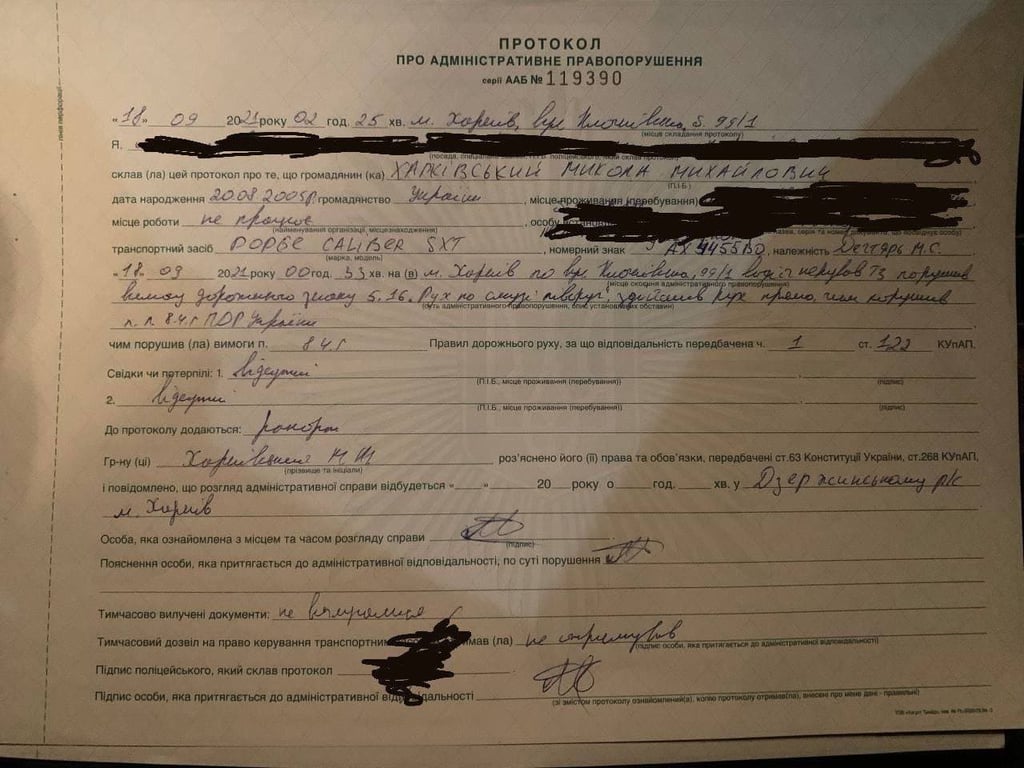 ПРОТОКОЛ
ПРО АДМІНІСТРАТИВНЕ ПРАВОПОРУШЕННЯ
серії ААБ № 119390
«18» 09 2021 року 02 год. 25 хв. м. Харків, вул Клочківська, б. 99/1
(місце складання протоколу)
Я,
склав (ла) цей протокол про те, що громадянин (ка) ХАРКІВСЬКИЙ МИКОЛА МИХАЙЛОВИЧ
(П.І.Б.)
дата народження 20.08.2005р. громадянство України, місце проживання (перебування)
місце роботи не працює, особу
(найменування організації, місцезнаходження)
транспортний засіб DODGE CALIBER SXT, номерний знак АХ 4455 ВО, належність Дегтярь М.С.
(марка, модель)
«18» 09 2021 року 00 год. 53 хв. на (в) м. Харків по вул Клочківська, 99/1 водій керував ТЗ порушив
(місце скоєння адміністративного правопорушення)
вимогу дорожнього знаку 5.16. Рух по смузі здійснив рух прямо, чим порушив
(суть адміністративного правопорушення, опис установлених обставин)
п. п. 8.4 г ПДР України
чим порушив (ла) вимоги п. 8.4 г Правил дорожнього руху, за що відповідальність передбачена ч. 1 ст. 122 КУпАП.
Свідки чи потерпілі: 1. відсутні
(П.І.Б., місце проживання (перебування)) (підпис)
2. відсутні
(П.І.Б., місце проживання (перебування)) (підпис)
До протоколу додаються: рапорт
Гр-ну (ці) Харківський М М роз'яснено його (її) права та обов'язки, передбачені ст.63 Конституції України, ст.268 КУпАП,
(прізвище та ініціали)
і повідомлено, що розгляд адміністративної справи відбудеться « » 20 року о год. хв. у Дзержинському р/с
м. Харків
Особа, яка ознайомлена з місцем та часом розгляду справи
(підпис)
Пояснення особи, яка притягається до адміністративної відповідальності, по суті порушення
Тимчасово вилучені документи: не вилучалися
Тимчасовий дозвіл на право керування транспортним мав (ла) не отримував
(підпис особи, яка притягається до адміністративної відповідальності)
Підпис поліцейського, який склав протокол
Підпис особи, яка притягається до адміністративної відповідальності
(зі змістом протоколу ознайомлений(а), копію протоколу отримав(ла), внесені про мене дані - правильні)